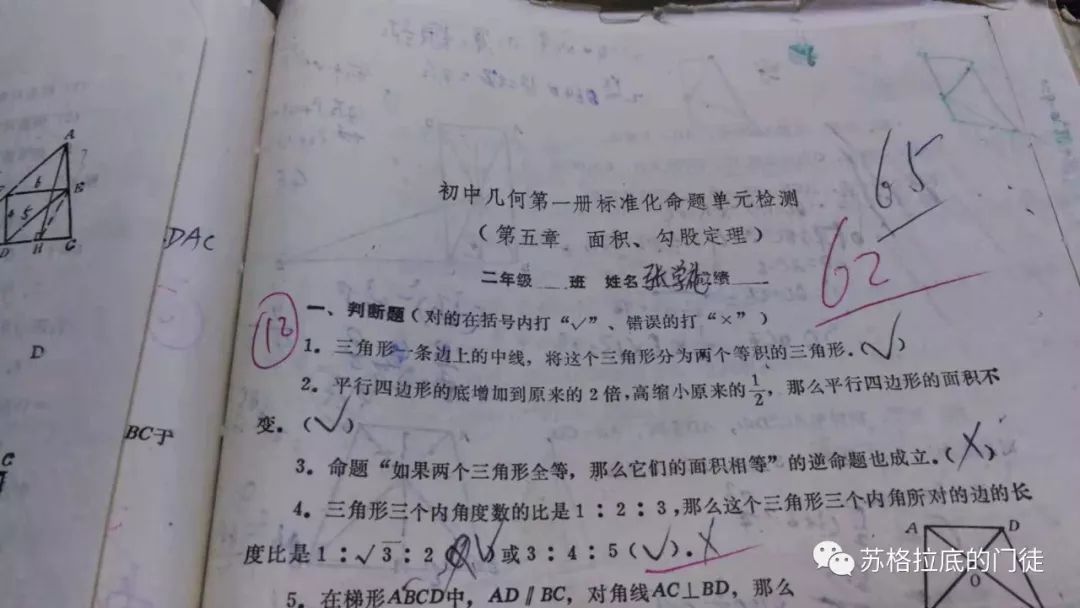 初中几何第一册标准化命题单元检测
（第五章 面积、勾股定理）
二年级 班 姓名 张学 绩
65
62
12
一、判断题（对的在括号内打“√”、错误的打“×”）
1。三角形一条边上的中线，将这个三角形分为两个等积的三角形。(√)
2。平行四边形的底增加到原来的2倍,高缩小原来的1/2，那么平行四边形的面积不
变。(√)
3。命题“如果两个三角形全等，那么它们的面积相等”的逆命题也成立。(×)
4。三角形三个内角度数的比是1：2：3,那么这个三角形三个内角所对的边的长
度比是1：√3：2(√)或3：4：5(√)。×
5。在梯形ABCD中，AD∥BC，对角线AC⊥BD，那么
A D
O
A
E
b
5
D H C
DAC
D
BC于
C
苏格拉底的门徒